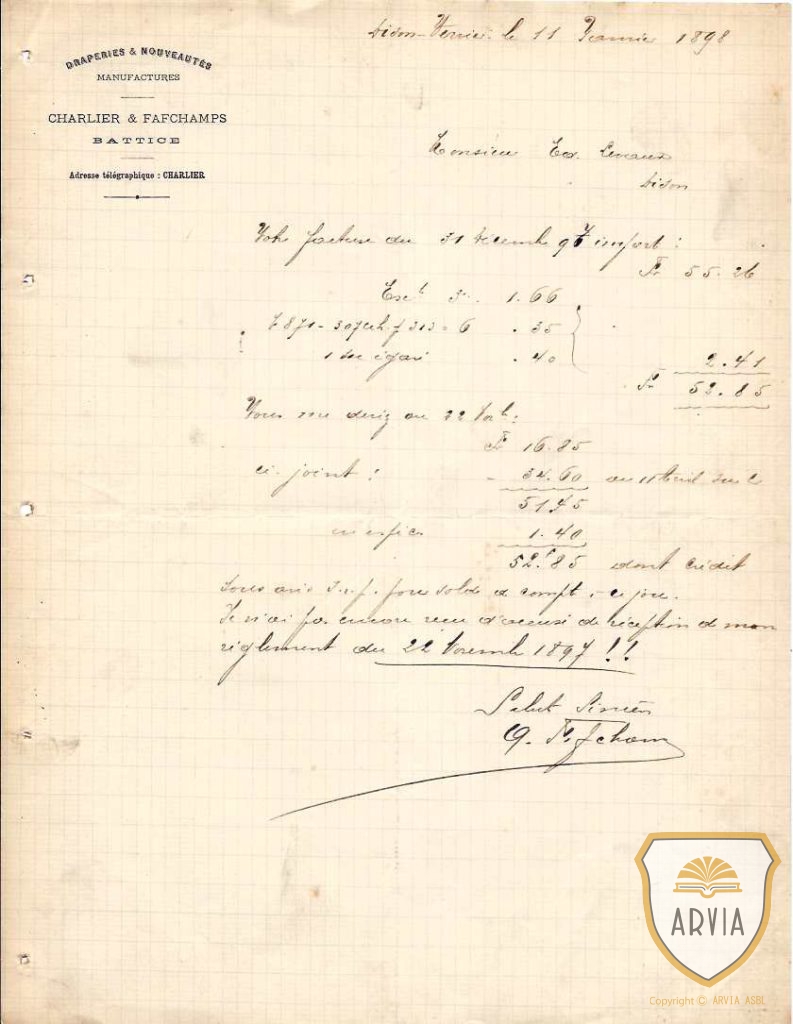 Dison-Verviers le 11 Janvier 1898
DRAPERIES & NOUVEAUTÉS
MANUFACTURES
CHARLIER & FAFCHAMPS
BATTICE
Adresse télégraphique : CHARLIER
Monsieur Ed. Levaux
Dison
Votre facture du 31 Décembre 97 import :
Fr 55.26
Esc. 3 1.66
.35
.40
2.41
Fr 52.85
Vous me deviez au 22
Fr 16.85
ci-joint : 34.60 au
51.45
en espèces 1.40
52.85 dont crédit
sous avis s.v.p. pour solde de compte à ce jour.
Je n'ai pas encore reçu d'accusé de réception de mon
règlement du 22 Novembre 1897 !!
Salut Sincère
Fafchamps
ARVIA
Copyright © ARVIA ASBL